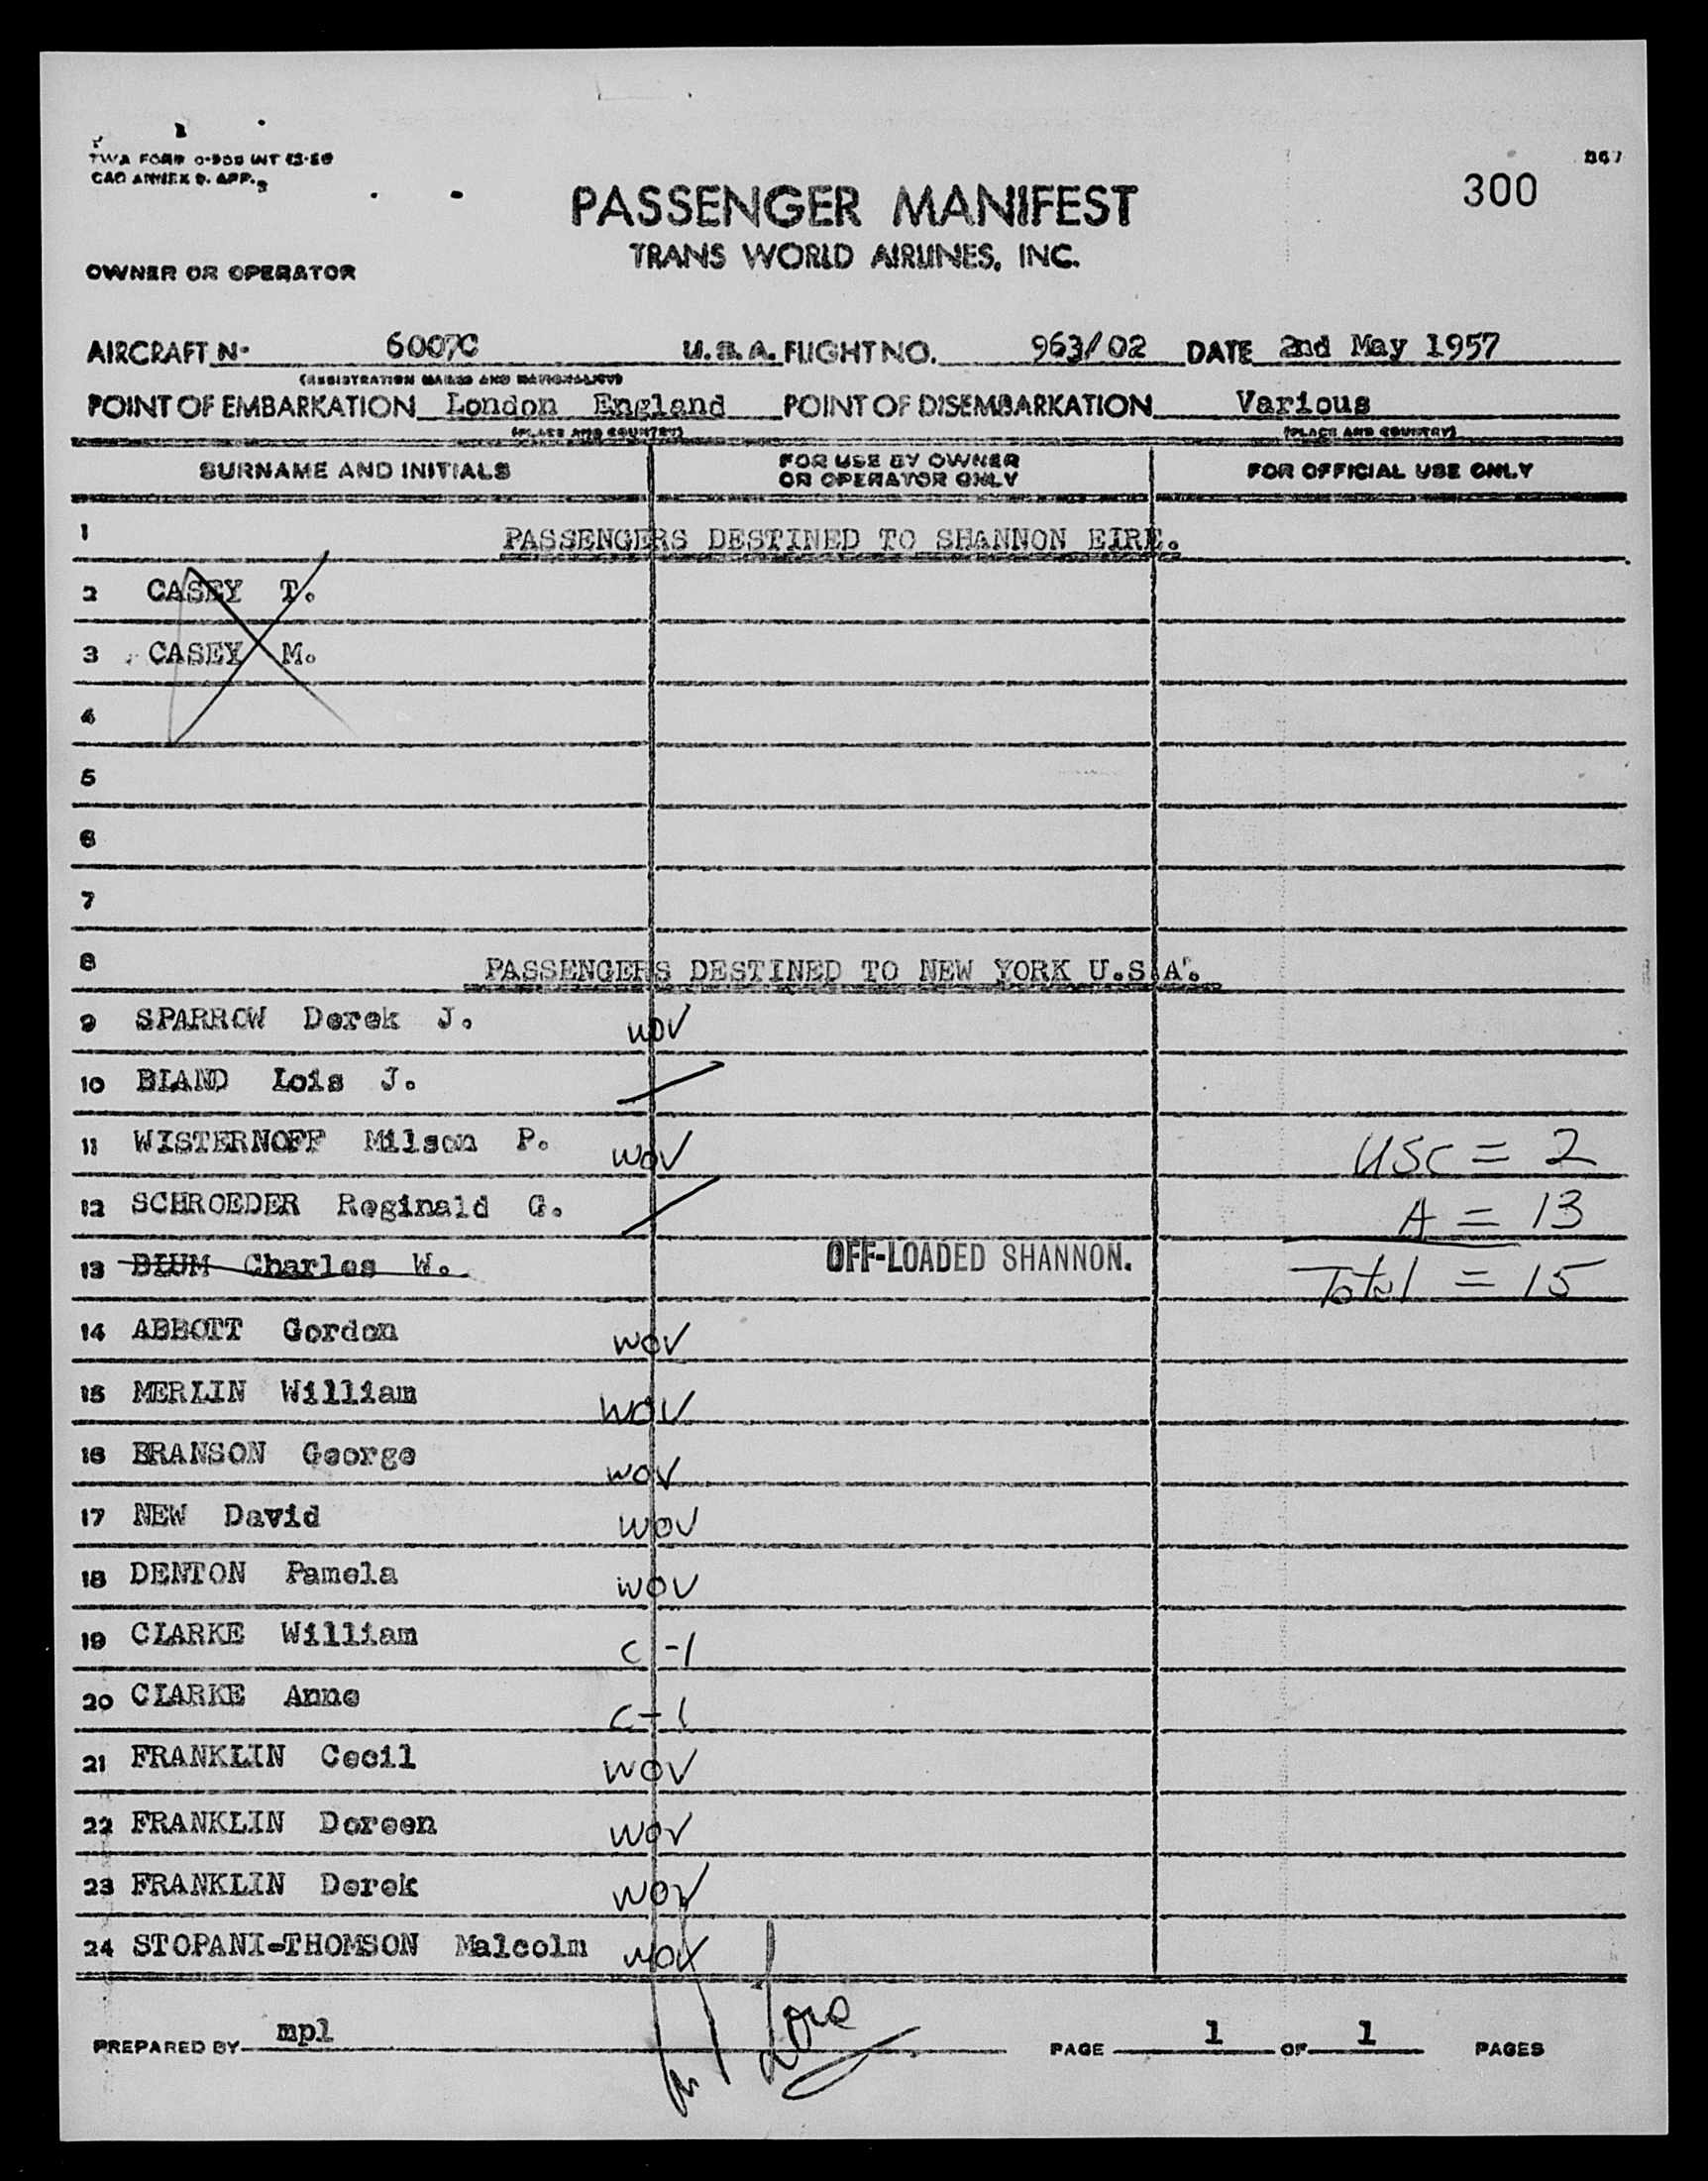 TWA FORM
300
PASSENGER MANIFEST
TRANS WORLD AIRLINES, INC.
OWNER OR OPERATOR
AIRCRAFT No. 6007C U.S.A. FLIGHT NO. 963/02 DATE 2nd May 1957
(REGISTRATION MARKS AND NATIONALITY)
POINT OF EMBARKATION London England POINT OF DISEMBARKATION Various
(PLACE AND COUNTRY) (PLACE AND COUNTRY)
SURNAME AND INITIALS FOR USE BY OWNER OR OPERATOR ONLY FOR OFFICIAL USE ONLY
1 PASSENGERS DESTINED TO SHANNON EIRE.
2 CASEY T.
3 CASEY M.
4
5
6
7
8 PASSENGERS DESTINED TO NEW YORK U.S.A.
9 SPARROW Derek J. WOV
10 BLAND Lois J.
11 WISTERNOFF Milson P. WOV USC = 2
12 SCHROEDER Reginald G. A = 13
13 BLUM Charles W. OFF-LOADED SHANNON. Total = 15
14 ABBOTT Gordon WOV
15 MERLIN William WOV
16 BRANSON George WOV
17 NEW David WOV
18 DENTON Pamela WOV
19 CLARKE William C-1
20 CLARKE Anne C-1
21 FRANKLIN Cecil WOV
22 FRANKLIN Doreen WOV
23 FRANKLIN Derek WOV
24 STOPANI-THOMSON Malcolm WOV
PREPARED BY mpl PAGE 1 OF 1 PAGES